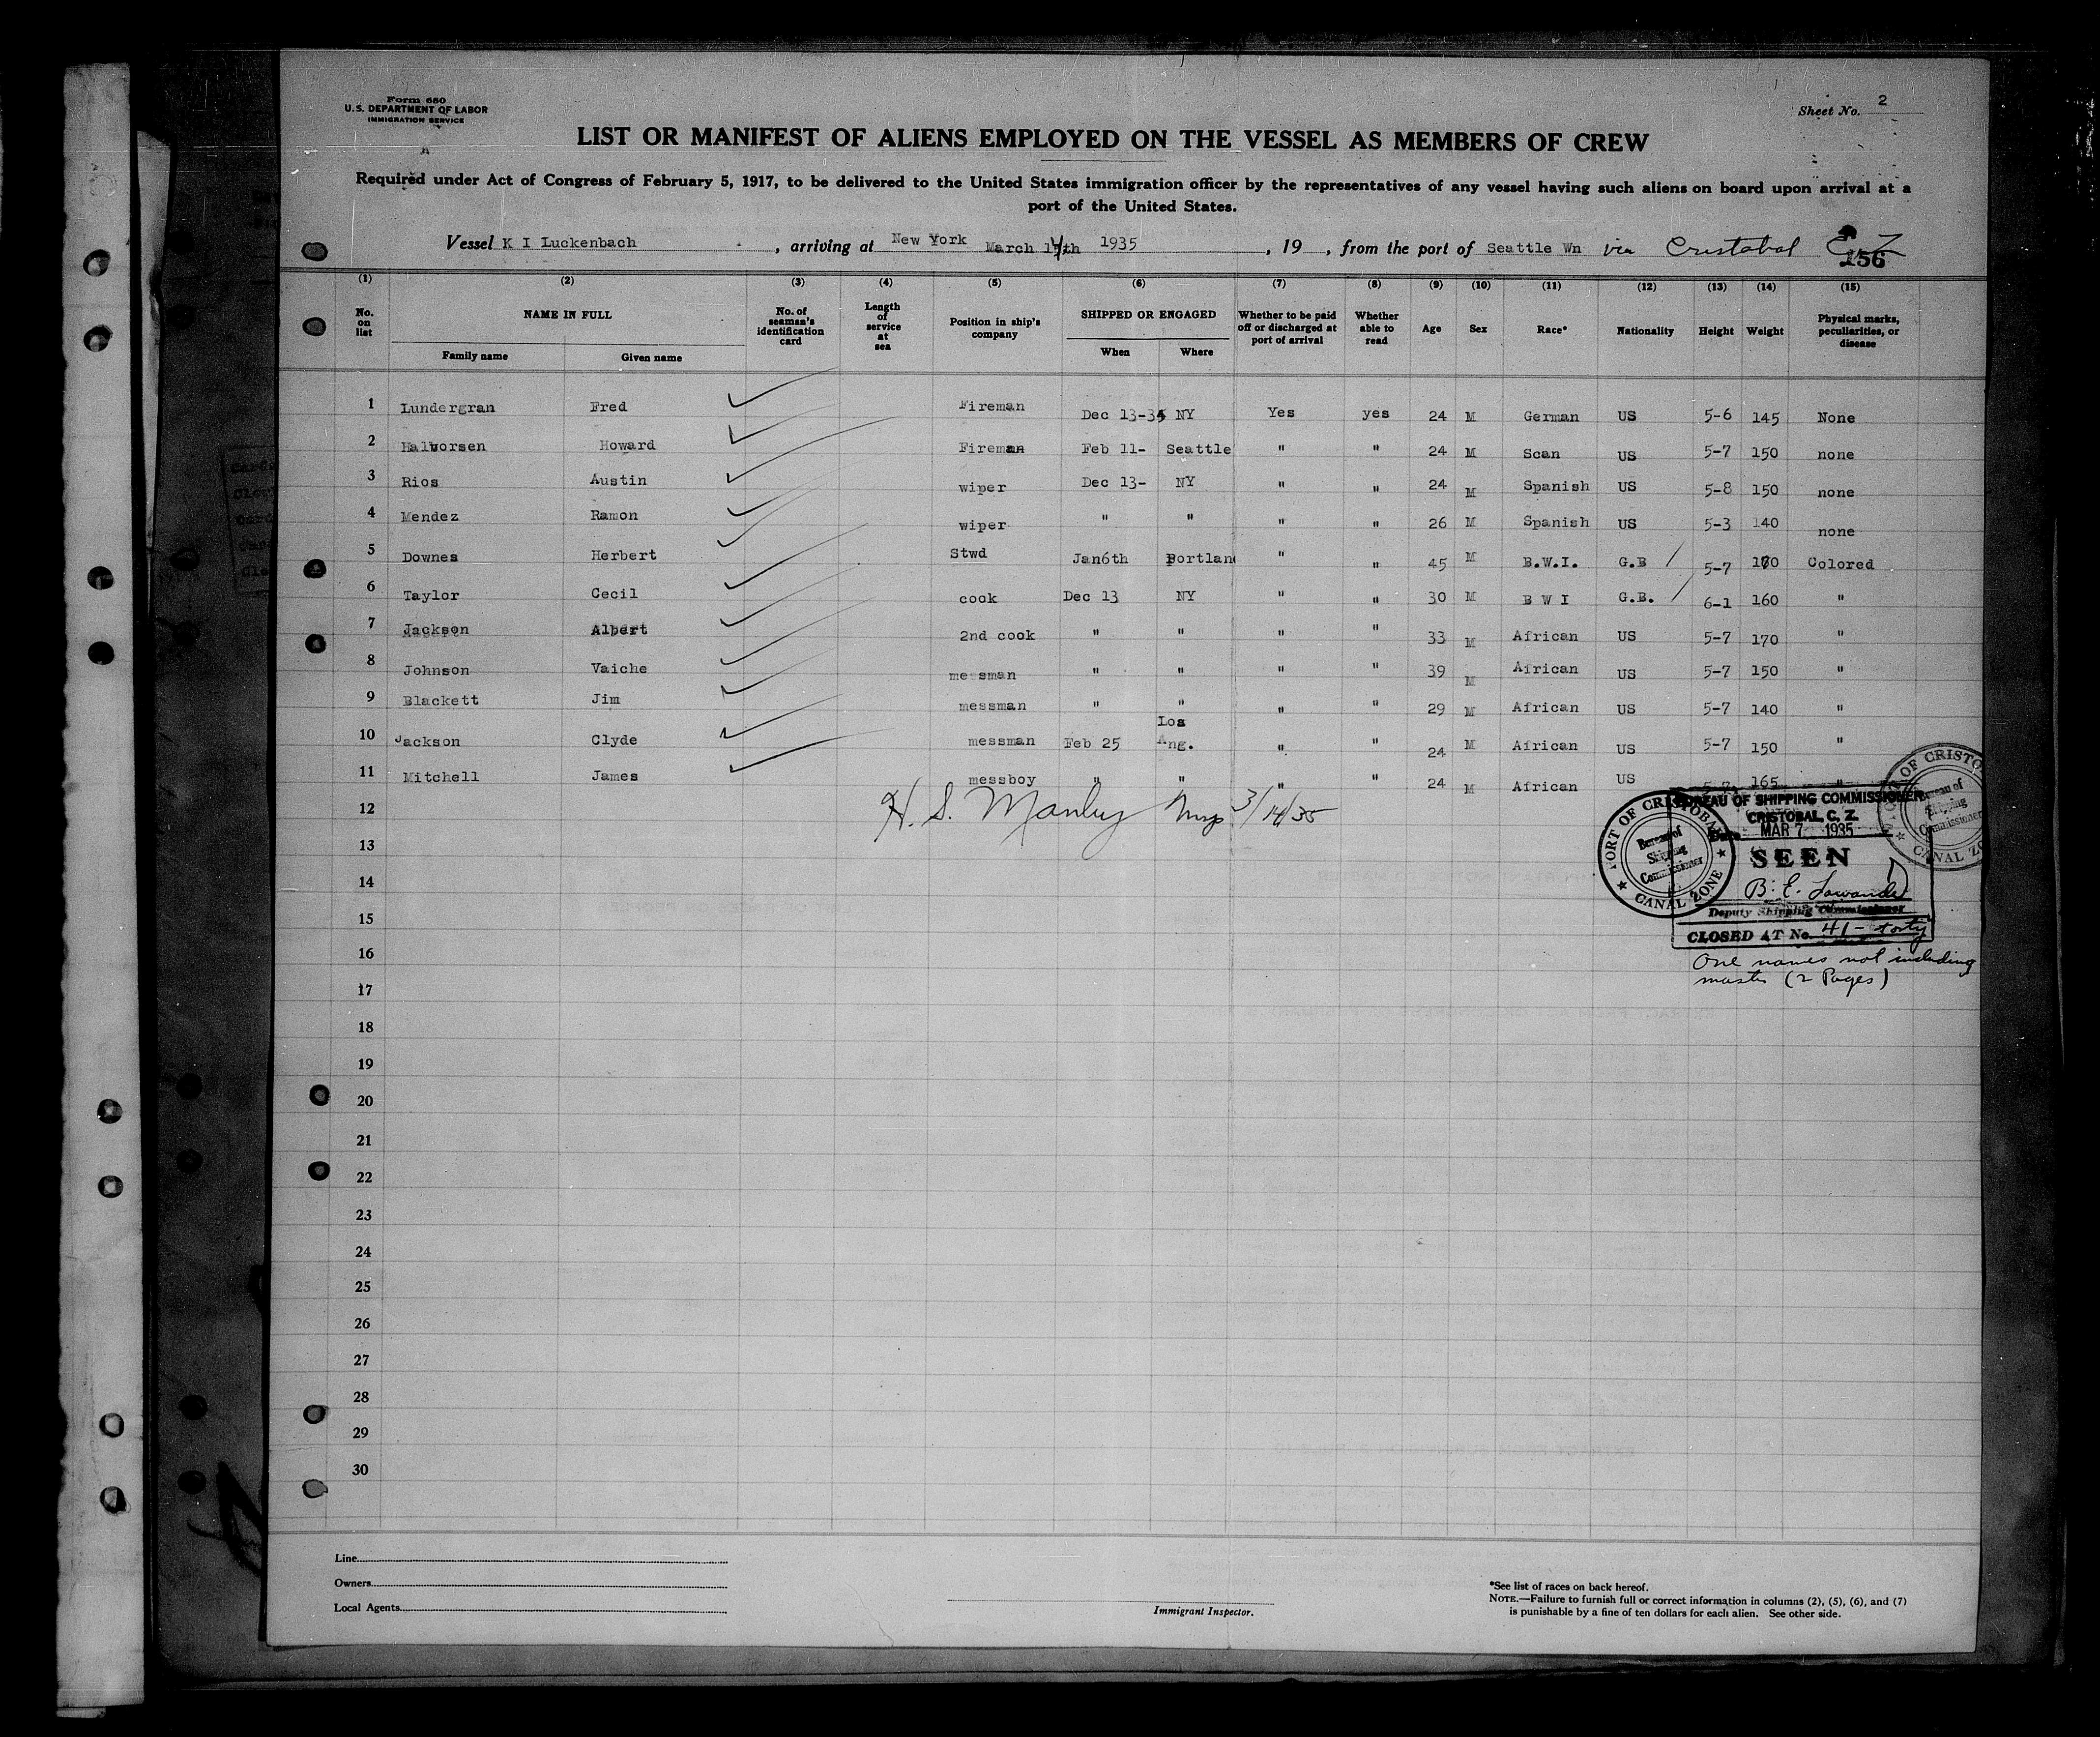 Form 680
U. S. DEPARTMENT OF LABOR
IMMIGRATION SERVICE
Sheet No. 2
LIST OR MANIFEST OF ALIENS EMPLOYED ON THE VESSEL AS MEMBERS OF CREW
Required under Act of Congress of February 5, 1917, to be delivered to the United States immigration officer by the representatives of any vessel having such aliens on board upon arrival at a
port of the United States.
Vessel K I Luckenbach, arriving at New York March 14th 1935, 19 , from the port of Seattle Wn via Cristobal C Z
156
(1) (2) (3) (4) (5) (6) (7) (8) (9) (10) (11) (12) (13) (14) (15)
No. on list NAME IN FULL Family name Given name No. of seaman's identification card Length of service at sea Position in ship's company SHIPPED OR ENGAGED When Where Whether to be paid off or discharged at port of arrival Whether able to read Age Sex Race* Nationality Height Weight Physical marks, peculiarities, or disease
1 Lundergran Fred Fireman Dec 13-34 NY Yes yes 24 M German US 5-6 145 None
2 Halvorsen Howard Fireman Feb 11- Seattle " " 24 M Scan US 5-7 150 none
3 Rios Austin wiper Dec 13- NY " " 24 M Spanish US 5-8 150 none
4 Mendez Ramon wiper " " " " 26 M Spanish US 5-3 140 none
5 Downes Herbert Stwd Jan6th Portland " " 45 M B.W.I. G.B 5-7 Colored
6 Taylor Cecil cook Dec 13 NY " " 30 M B W I G.B. 6-1 160 "
7 Jackson Albert 2nd cook " " " " 33 M African US 5-7 170 "
8 Johnson Vaiche messman " " " " 39 M African US 5-7 150 "
9 Blackett Jim messman " " " " 29 M African US 5-7 140 "
10 Jackson Clyde messman Feb 25 Los Ang. " " 24 M African US 5-7 150 "
11 Mitchell James messboy " " " " 24 M African US 5-7 165 "
12 H. S. Manley 3/14/35
13
14
15
16
17
18
19
20
21
22
23
24
25
26
27
28
29
30
BUREAU OF SHIPPING COMMISSIONER
CRISTOBAL, C. Z.
Date MAR 7 1935
SEEN
B. E.
Deputy Shipping Commissioner
CLOSED AT No. 41 - forty
One names not including
master (2 Pages)
PORT OF CRISTOBAL
Bureau of
Shipping
Commissioner
CANAL ZONE
PORT OF CRISTO
Bureau of
Shipping
Commissioner
CANAL ZO
Line
Owners
Local Agents
Immigrant Inspector.
*See list of races on back hereof.
NOTE.—Failure to furnish full or correct information in columns (2), (5), (6), and (7)
is punishable by a fine of ten dollars for each alien. See other side.